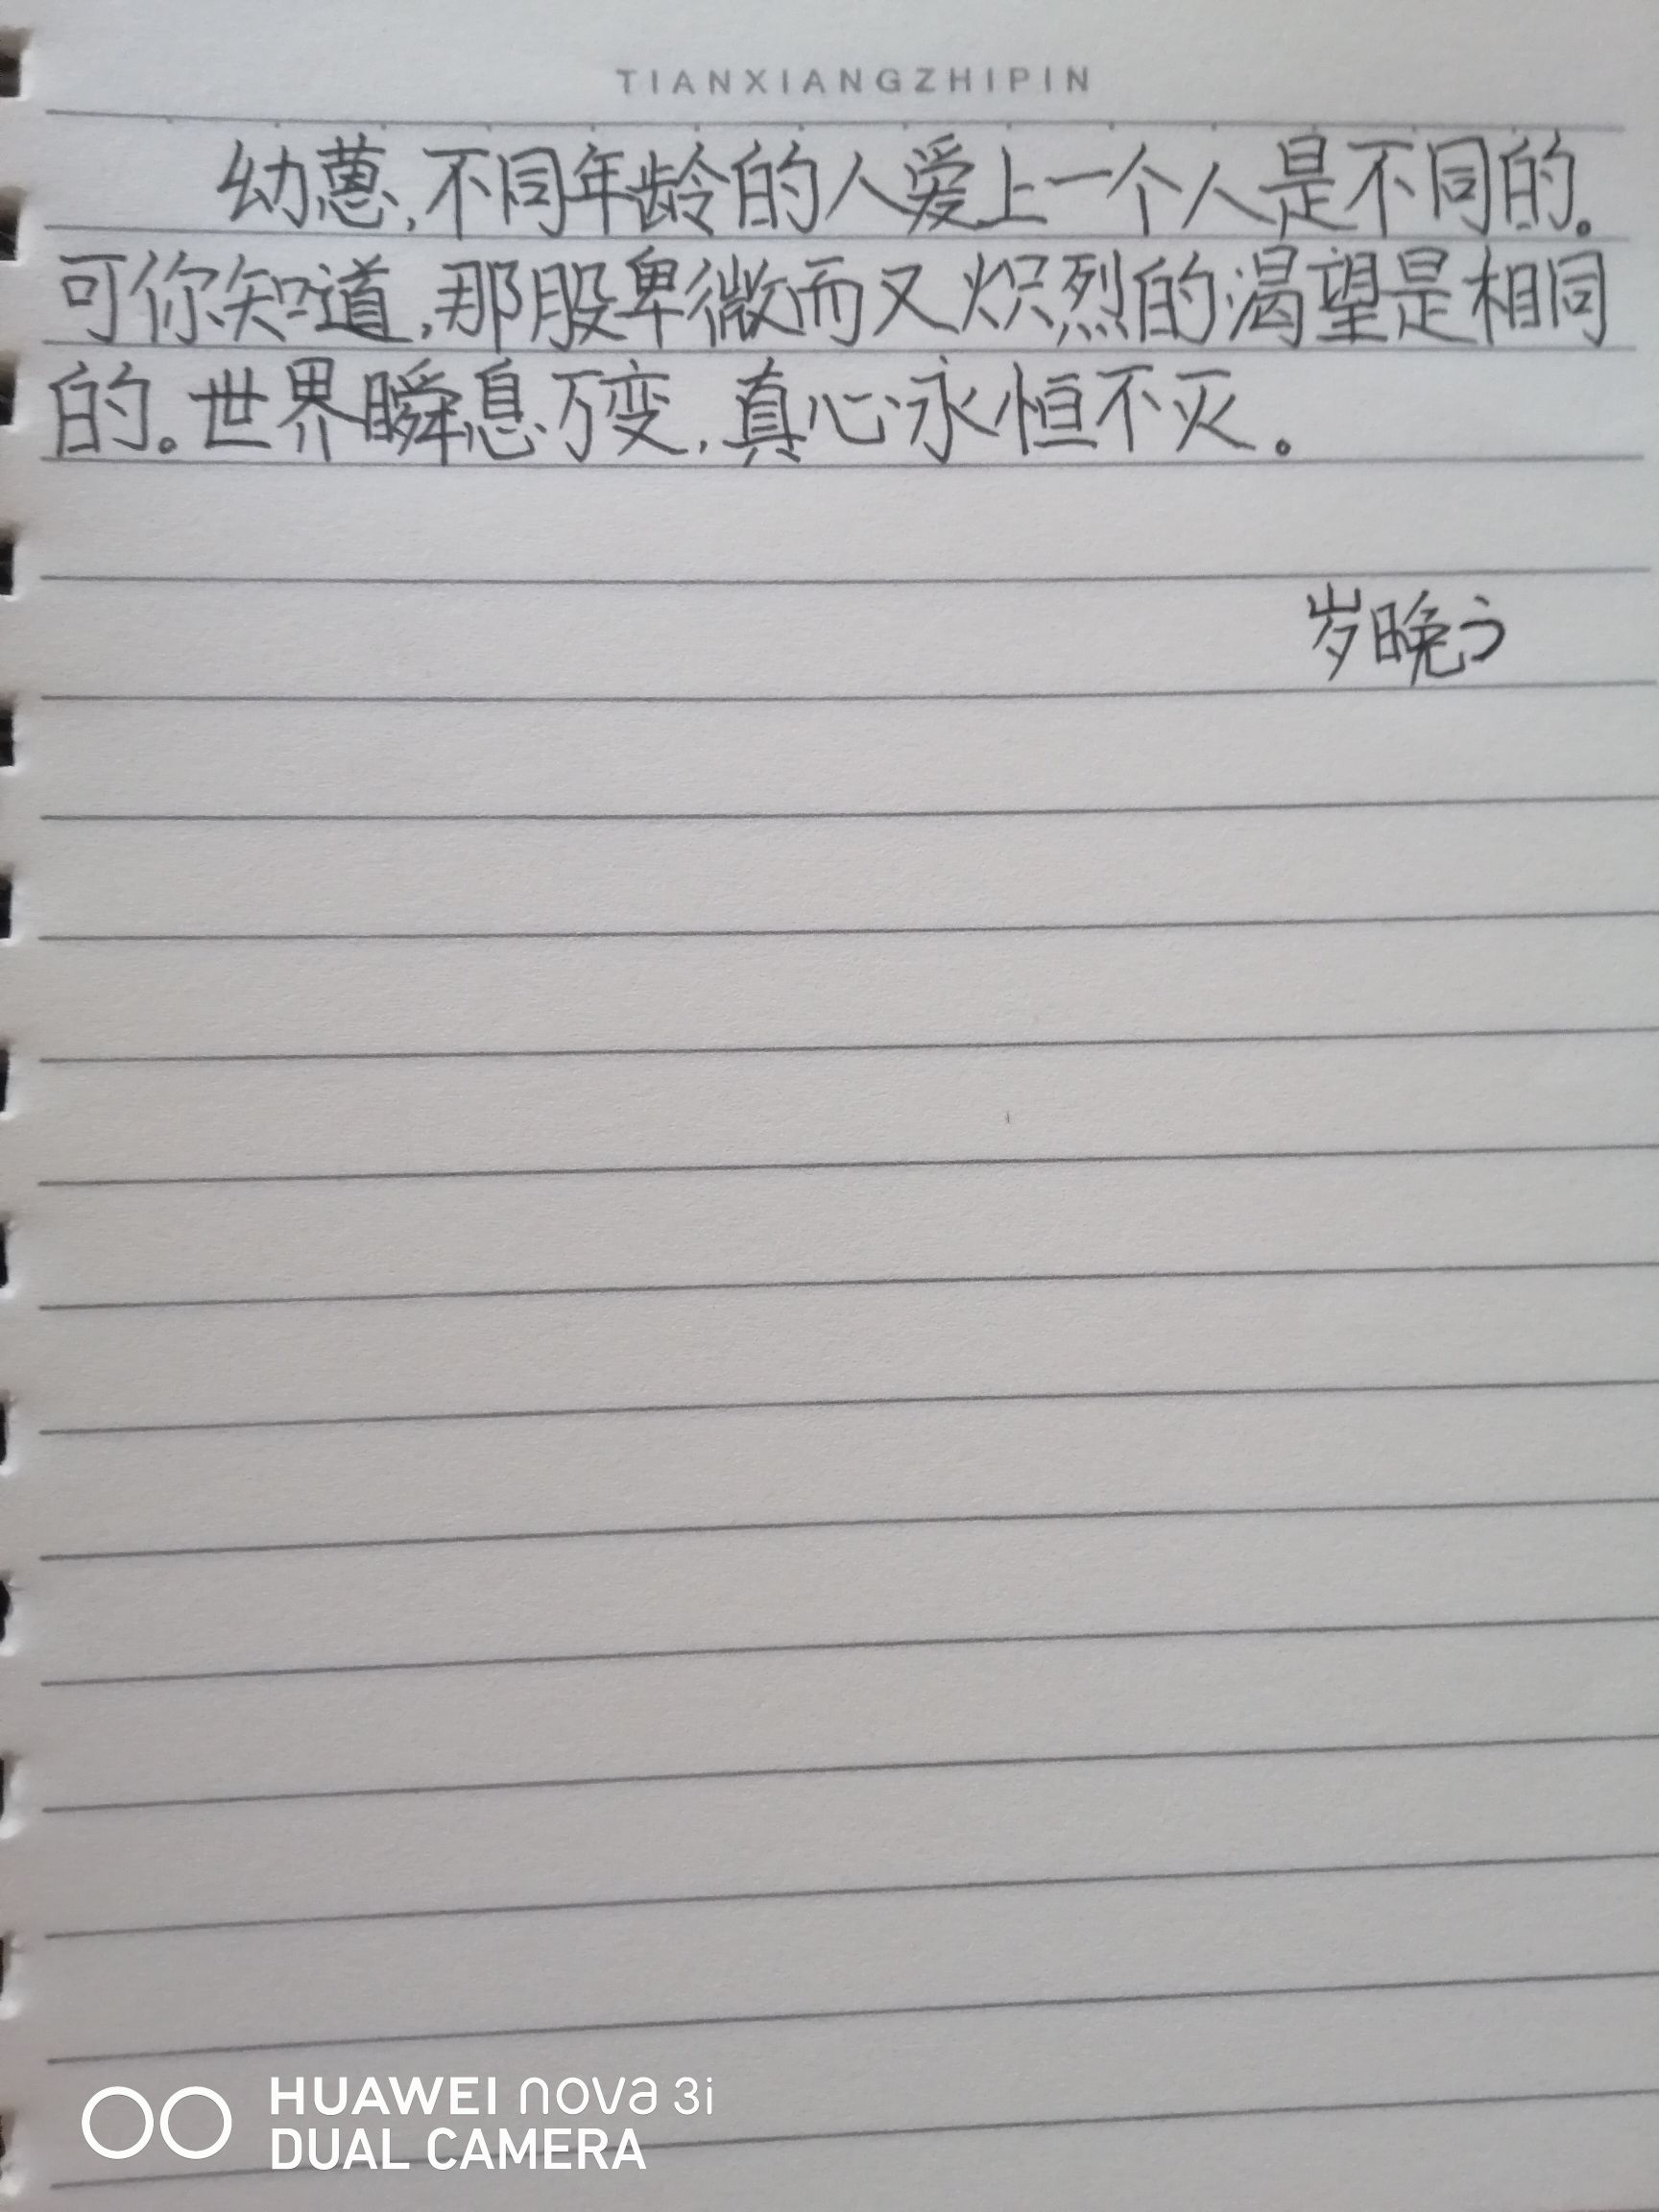 TIANXIANGZHIPIN
幼蒽,不同年龄的人爱上一个人是不同的。
可你知道,那股卑微而又炽烈的渴望是相同
的。世界瞬息万变,真心永恒不灭。
岁晚う
HUAWEI nova 3i
DUAL CAMERA